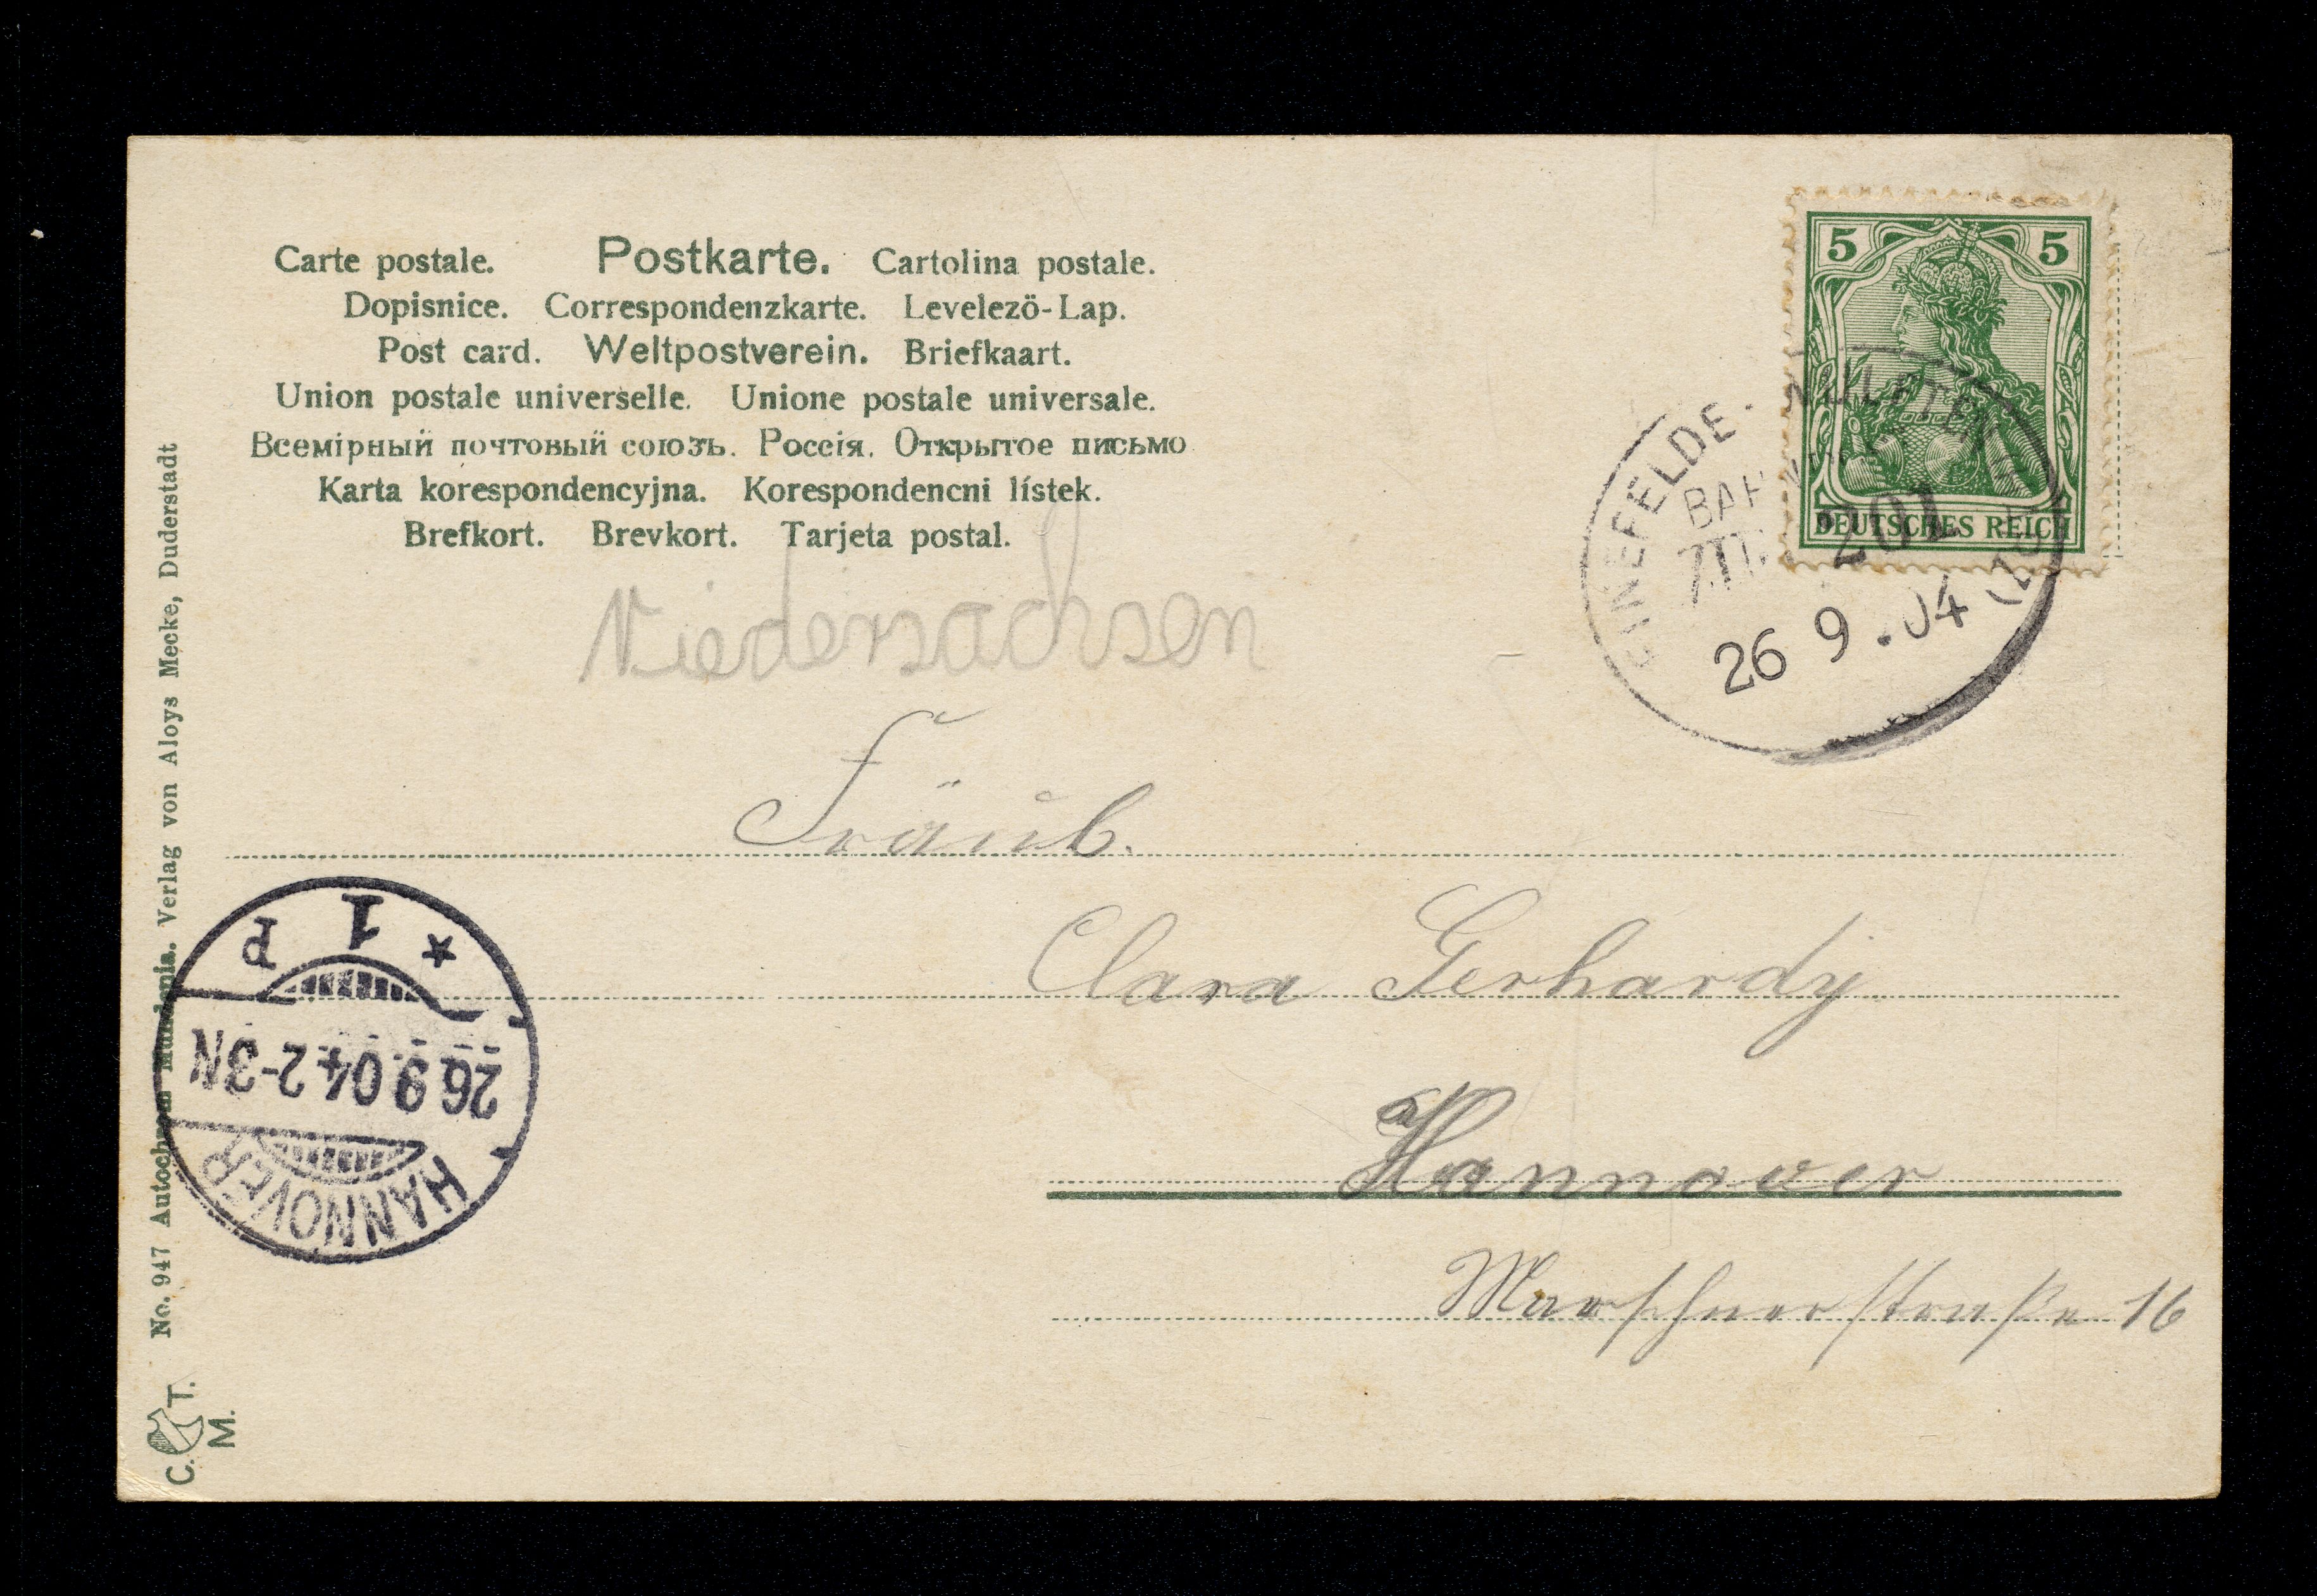 Carte postale. Postkarte. Cartolina postale.
Dopisnice. Correspondenzkarte. Levelezö-Lap.
Post card. Weltpostverein. Briefkaart.
Union postale universelle. Unione postale universale.
Всемірный почтовый союзъ. Россія. Открытое письмо
Karta korespondencyjna. Korespondencni lístek.
Brefkort. Brevkort. Tarjeta postal.
5 5
DEUTSCHES REICH
EINEFELDE - WULFTEN
ZUG 201
26 9.04
Niedersachsen
Clara Gerhardy
Hannover
Marschnerstraße 16
* 1 P
26.9.04.2-3N
HANNOVER
No. 947 Autochrom Mundania. Verlag von Aloys Mecke, Duderstadt
C. T.
M.